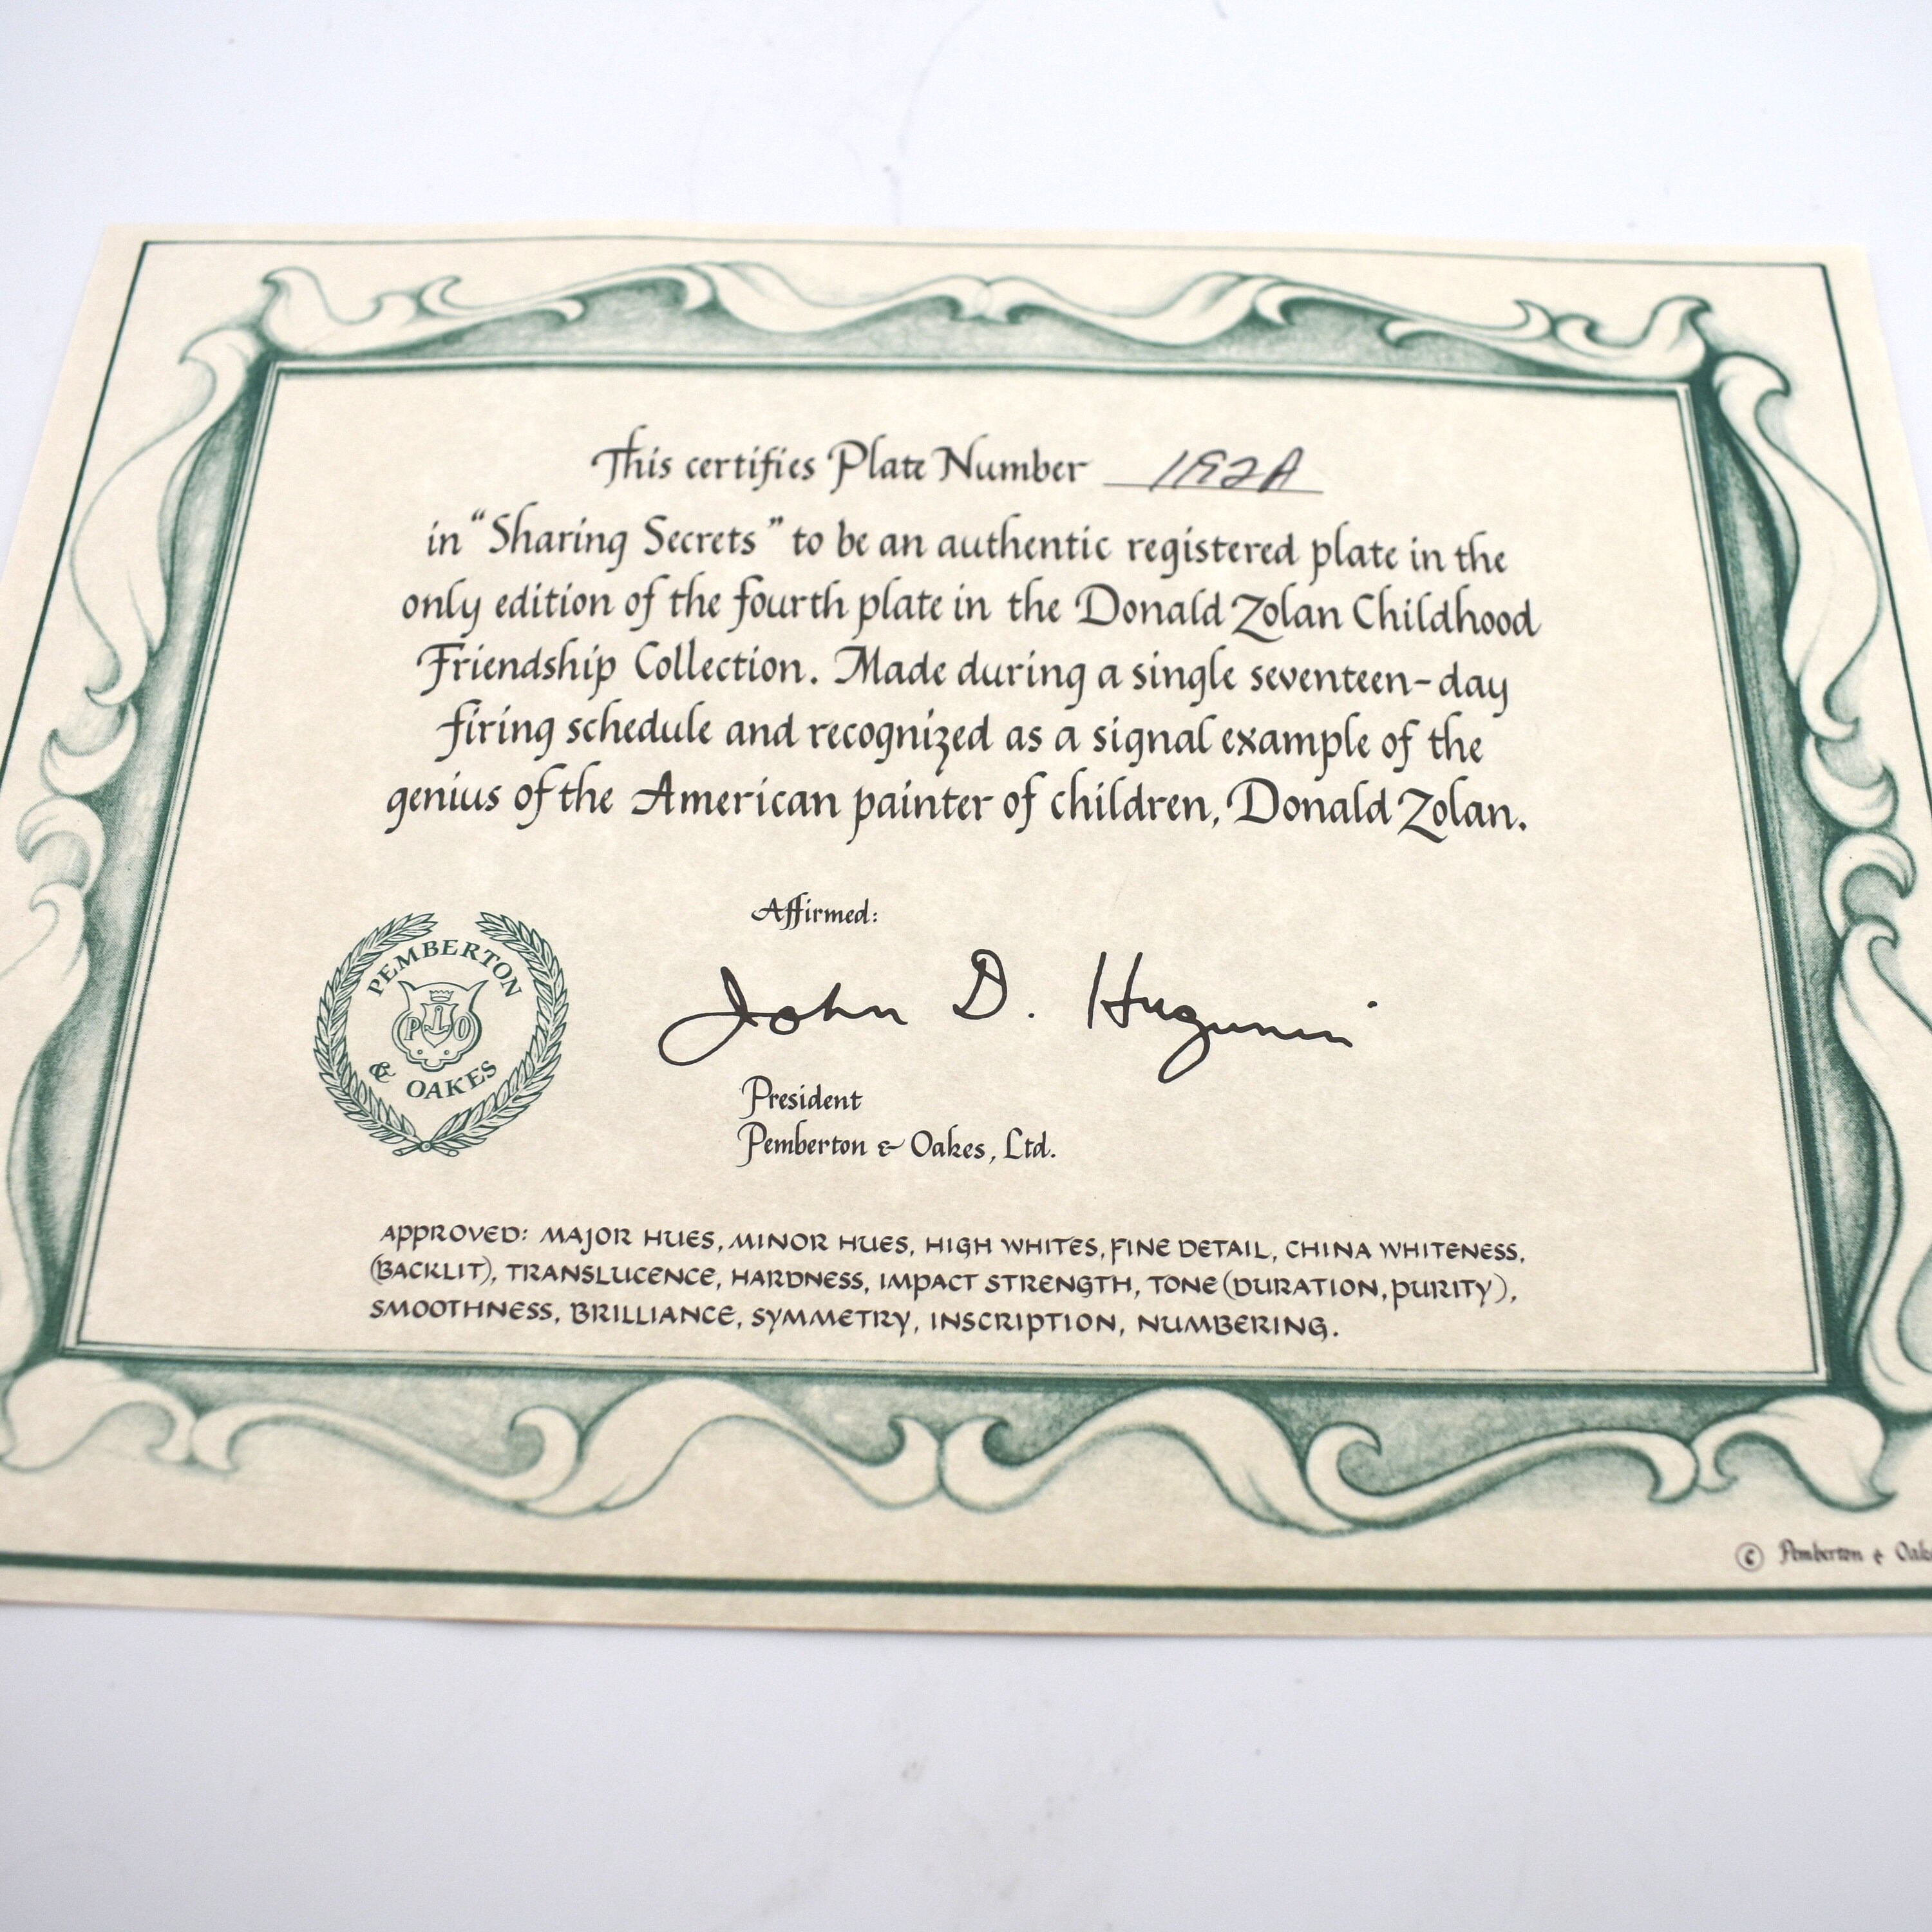 This certifies Plate Number 1192A
in "Sharing Secrets" to be an authentic registered plate in the
only edition of the fourth plate in the Donald Zolan Childhood
Friendship Collection. Made during a single seventeen-day
firing schedule and recognized as a signal example of the
genius of the American painter of children, Donald Zolan.
Affirmed:
John D. Hugunin
PEMBERTON
P O
& OAKES
President
Pemberton & Oakes, Ltd.
APPROVED: MAJOR HUES, MINOR HUES, HIGH WHITES, FINE DETAIL, CHINA WHITENESS,
(BACKLIT), TRANSLUCENCE, HARDNESS, IMPACT STRENGTH, TONE (DURATION, PURITY),
SMOOTHNESS, BRILLIANCE, SYMMETRY, INSCRIPTION, NUMBERING.
© Pemberton & Oak